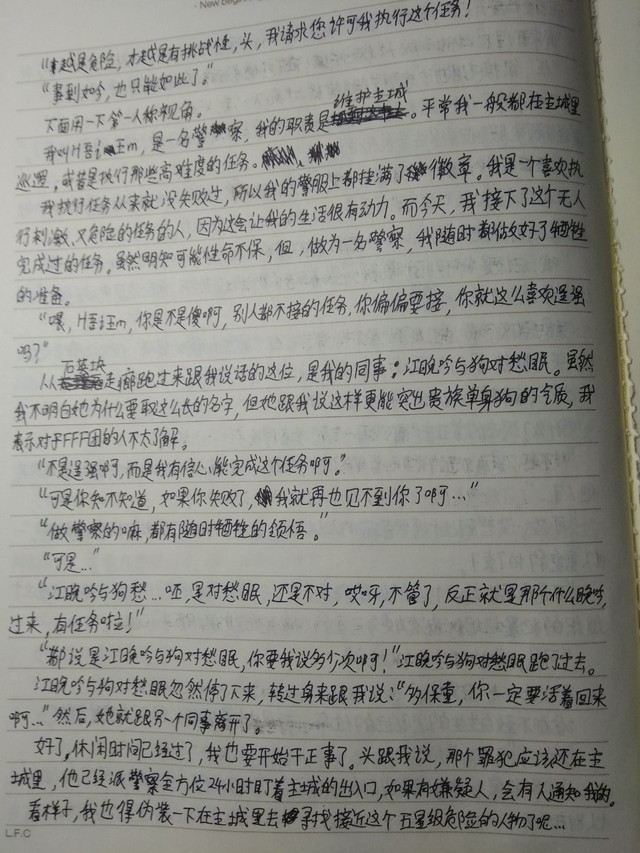 · New Beginning
“越是危险，才越是有挑战性，头，我请求您许可我执行这个任务！
“事到如今，也只能如此了。”
下面用一下第一人称视角。
我叫H吾讠王m，是一名警察，我的职责是维护主城。平常我一般都在主城里
巡逻，或者是执行那些高难度的任务。
我执行任务从来就没失败过，所以我的警服上都挂满了徽章。我是一个喜欢执
行刺激又危险的任务的人，因为这会让我的生活很有动力。而今天，我接下了这个无人
完成过的任务。虽然明知可能性命不保，但，做为一名警察，我随时都做好了牺牲
的准备。
“喂，H吾讠王m，你是不是傻啊，别人都不接的任务，你偏偏要接，你就这么喜欢逞强
吗？”
从石英块走廊跑过来跟我说话的这位，是我的同事：江晚吟与狗对愁眠。虽然
我不明白她为什么要取这么长的名字，但她跟我说这样更能突出贵族单身狗的气质，我
表示对于FFF团的人不太了解。
“不是逞强啊，而是我有信心能完成这个任务啊。”
“可是你知不知道，如果你失败了，我就再也见不到你了啊…”
“做警察的嘛，都有随时牺牲的领悟。”
“可是…”
“江晚吟与狗愁…呸，是对愁眠，还是不对，哎呀，不管了，反正就是那个什么晚吟，
过来，有任务啦！”
“都说是江晚吟与狗对愁眠，你要我说多少次啊！”江晚吟与狗对愁眠跑了过去。
江晚吟与狗对愁眠忽然停了下来，转过身来跟我说：“多保重，你一定要活着回来
啊…”然后，她就跟另一个同事离开了。
好了，休闲时间已经过了，我也要开始干正事了。头跟我说，那个罪犯应该还在主
城里，他已经派警察全方位24小时盯着主城的出入口，如果有嫌疑人，会有人通知我的。
看样子，我也得伪装一下在主城里去寻找接近这个五星级危险的人物了呢…
L.F.C